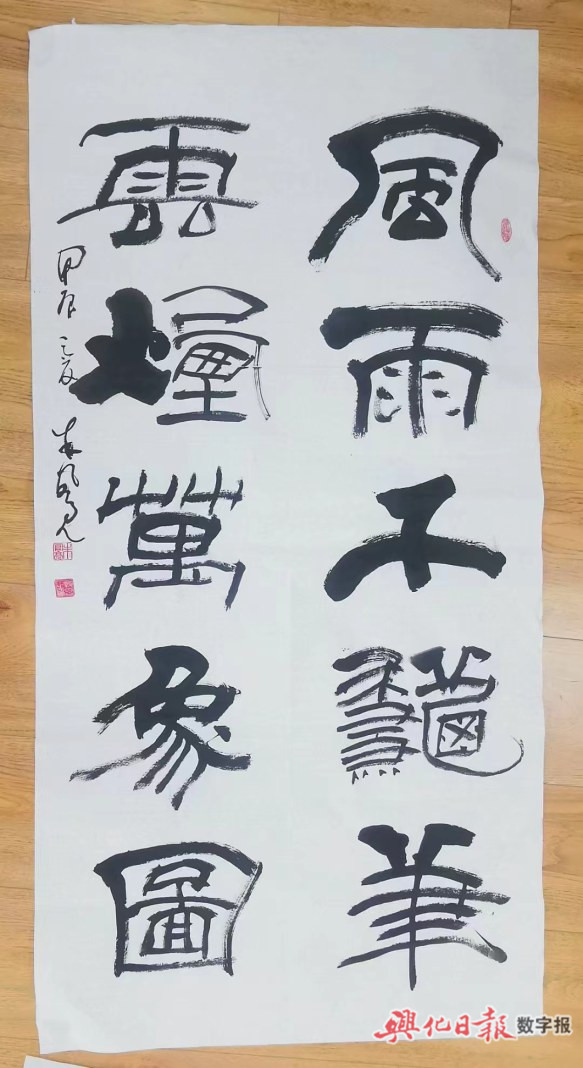 風雨不筆
雲煙萬象圖
甲辰之夏
興化日報 数字报